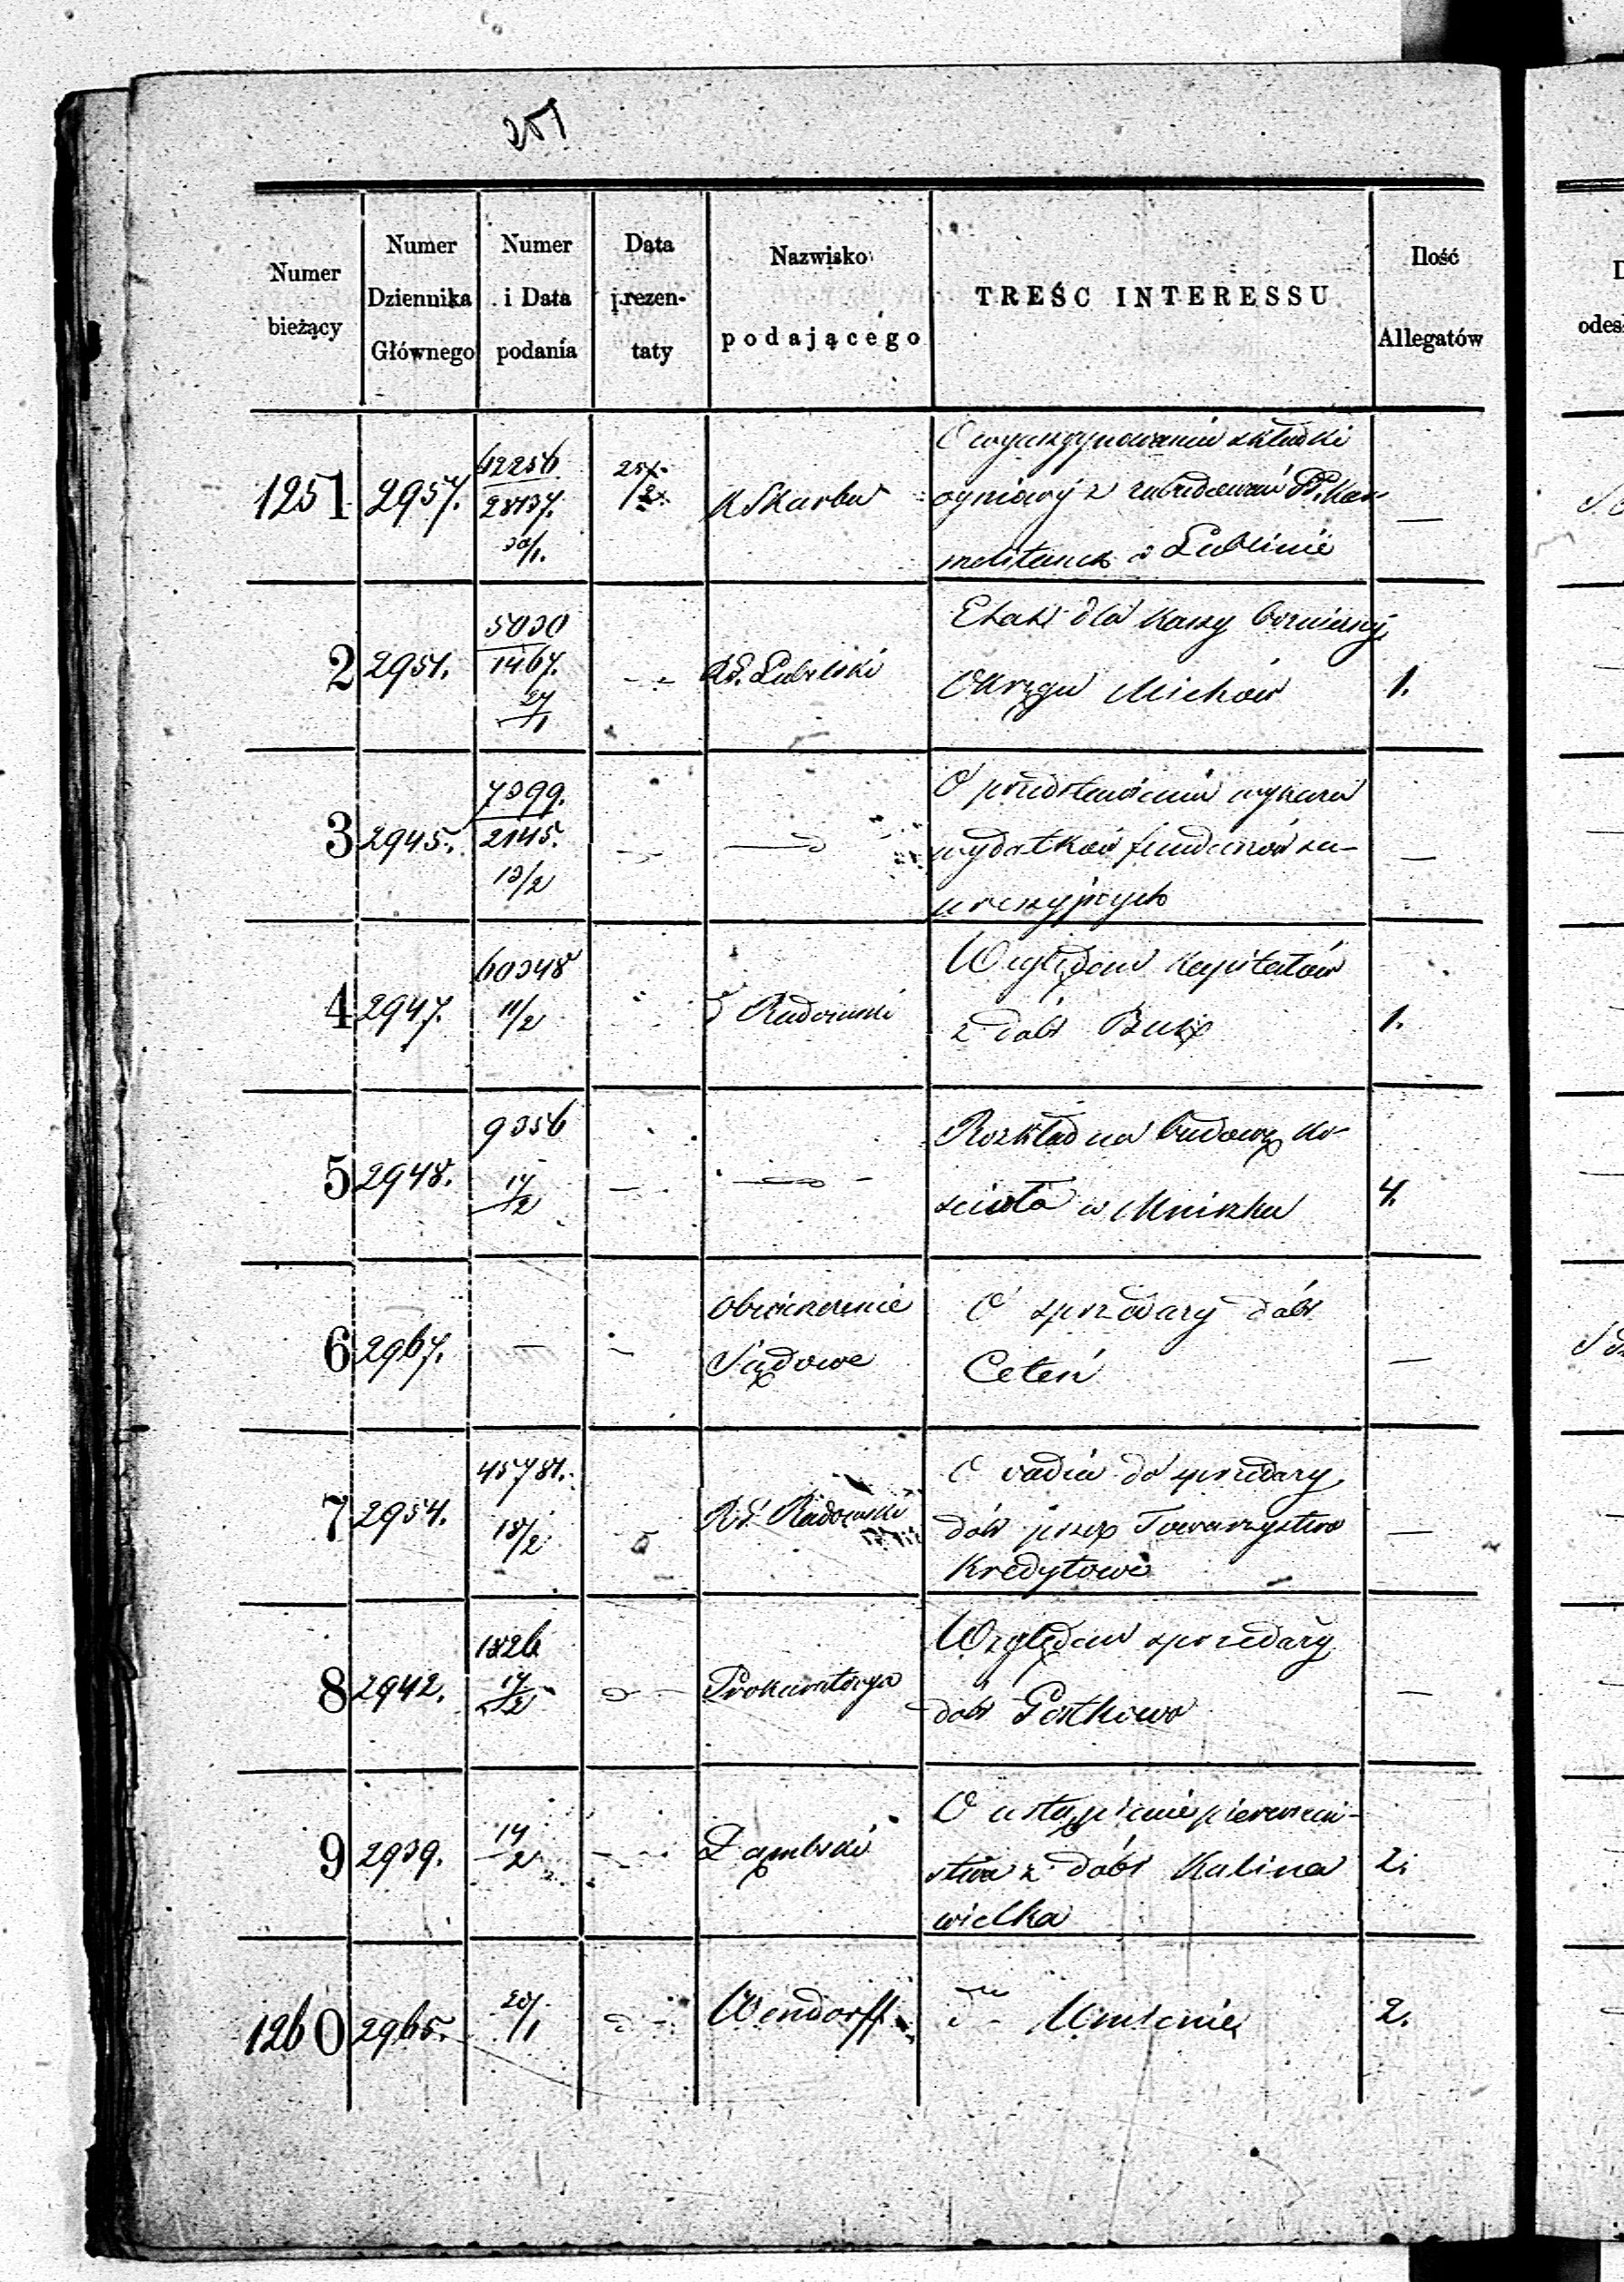 251
Numer bieżący
Numer Dziennika Głównego
Numer i Data podania
Data prezentaty
Nazwisko podającego
TREŚC INTERESSU
Ilość Allegatów
1251 2957. 62256 28137. 30/1. 25/2 K Skarbu
składki
ogniowéj z zabudowań PP. Kar-
melitanek w Lublinie —
2 2951. 5030 1467. 27/1 — RG. Lubelski
Etat dla Kassy
Okręgu Michów 1.
3 2945. 7399. 2145. 13/2 — —
O przedstawienie wykazu
wydatków funduszów
—
4 2947. 60348 11/2 Radomski
Względem Kapitałów
z dóbr 1.
5 2948. 9356 17/2 — —
Rozkład na budowę ko-
ścioła w Mniszku 4.
6 2967. — — Obwieszczenie
Sądowe
O sprzedaży dóbr
Ceteń —
7 2954. 45781. 18/2 RG. Radomski
O vadia do sprzedaży
dóbr przez Towarzystwo
Kredytowe —
8 2942. 1826 17/2 — Prokuratorya
Względem sprzedaży
dóbr —
9 2939. 14/2 — Dąmbski
O ustąpienie pierwszeń-
stwa z dóbr Kalina 2.
wielka
1260 2965. 20/1 d - Wendorff
dto 2.